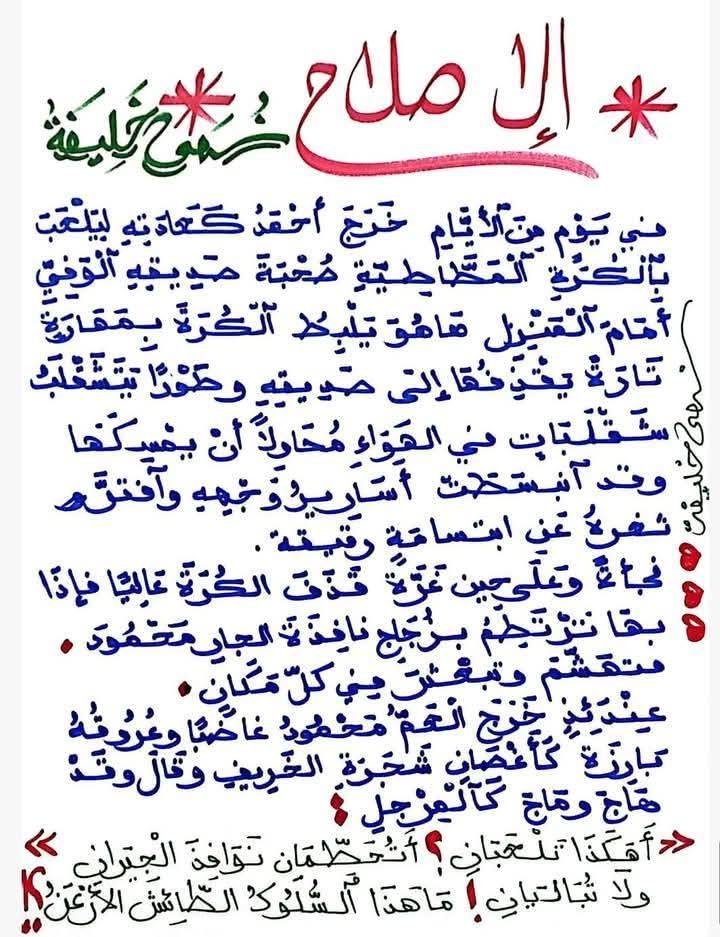 الإصلاح
نهى خليفة
في يَوْمٍ مِنَ ٱلْأَيَّامِ خَرَجَ أَحْمَدُ كَعَادَتِهِ لِيَلْعَبَ
بِٱلْكُرَةِ ٱلْمَطَّاطِيَّةِ صُحْبَةَ صَدِيقِهِ ٱلْوَفِيِّ
أَمَامَ ٱلْمَنْزِلِ هَاهُوَ يَلْبِطُ ٱلْكُرَةَ بِمَهَارَةٍ
تَارَةً يَقْذِفُهَا إِلَى صَدِيقِهِ وَطَوْرًا يَتَشَقْلَبُ
شَقْلَبَاتٍ فِي الهَوَاءِ مُحَاوِلاً أَنْ يُمْسِكَهَا
وقد ٱنْبَسَطَتْ أَسَارِيرُ وَجْهِهِ وَٱفْتَرَّ
ثَغْرُهُ عَنِ ابْتِسَامَةٍ رَقِيقَة.
فَجْأَةً وَعَلَى حِينِ غِرَّةٍ قَذَفَ الكُرَةَ عَالِيًا فَإِذَا
بِهَا تَرْتَطِمُ بِزُجَاجِ نَافِذَةِ الجارِ مَحْمُودَ.
فتهَشَّمَ وتبَعْثَرَ فِي كلِّ مَكَانٍ.
عِنْدَئِذٍ خَرَجَ الْعَمُّ مَحْمُودُ غَاضِبًا وعُرُوقُهُ
بَارِزَة كَأَغْصَانِ شَجَرَةِ الخَرِيفِ وَقَالَ وقَدْ
هَاجَ ومَاجَ كَٱلْمِرْجَلِ :
«أَهَكَذَا تلْعَبَانِ؟ أَتُحَطِّمَانِ نَوَافِذَ الْجِيرَانِ
ولَا تُبَالِيَانِ! مَا هَذَا ٱلسُّلُوكُ الطَّائِشُ الأَرْعَنُ؟!»
نهى خليفة